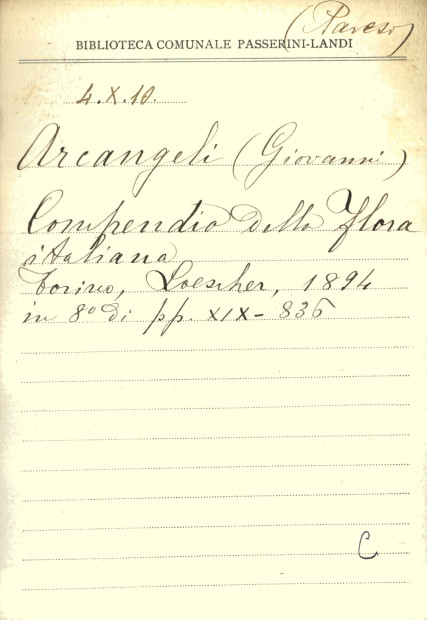 (Pareso)
BIBLIOTECA COMUNALE PASSERINI-LANDI
4.X.10.
Arcangeli (Giovanni)
Compendio della Flora
italiana
Torino, Loescher, 1894
in 8º di pp. XIX-836
C